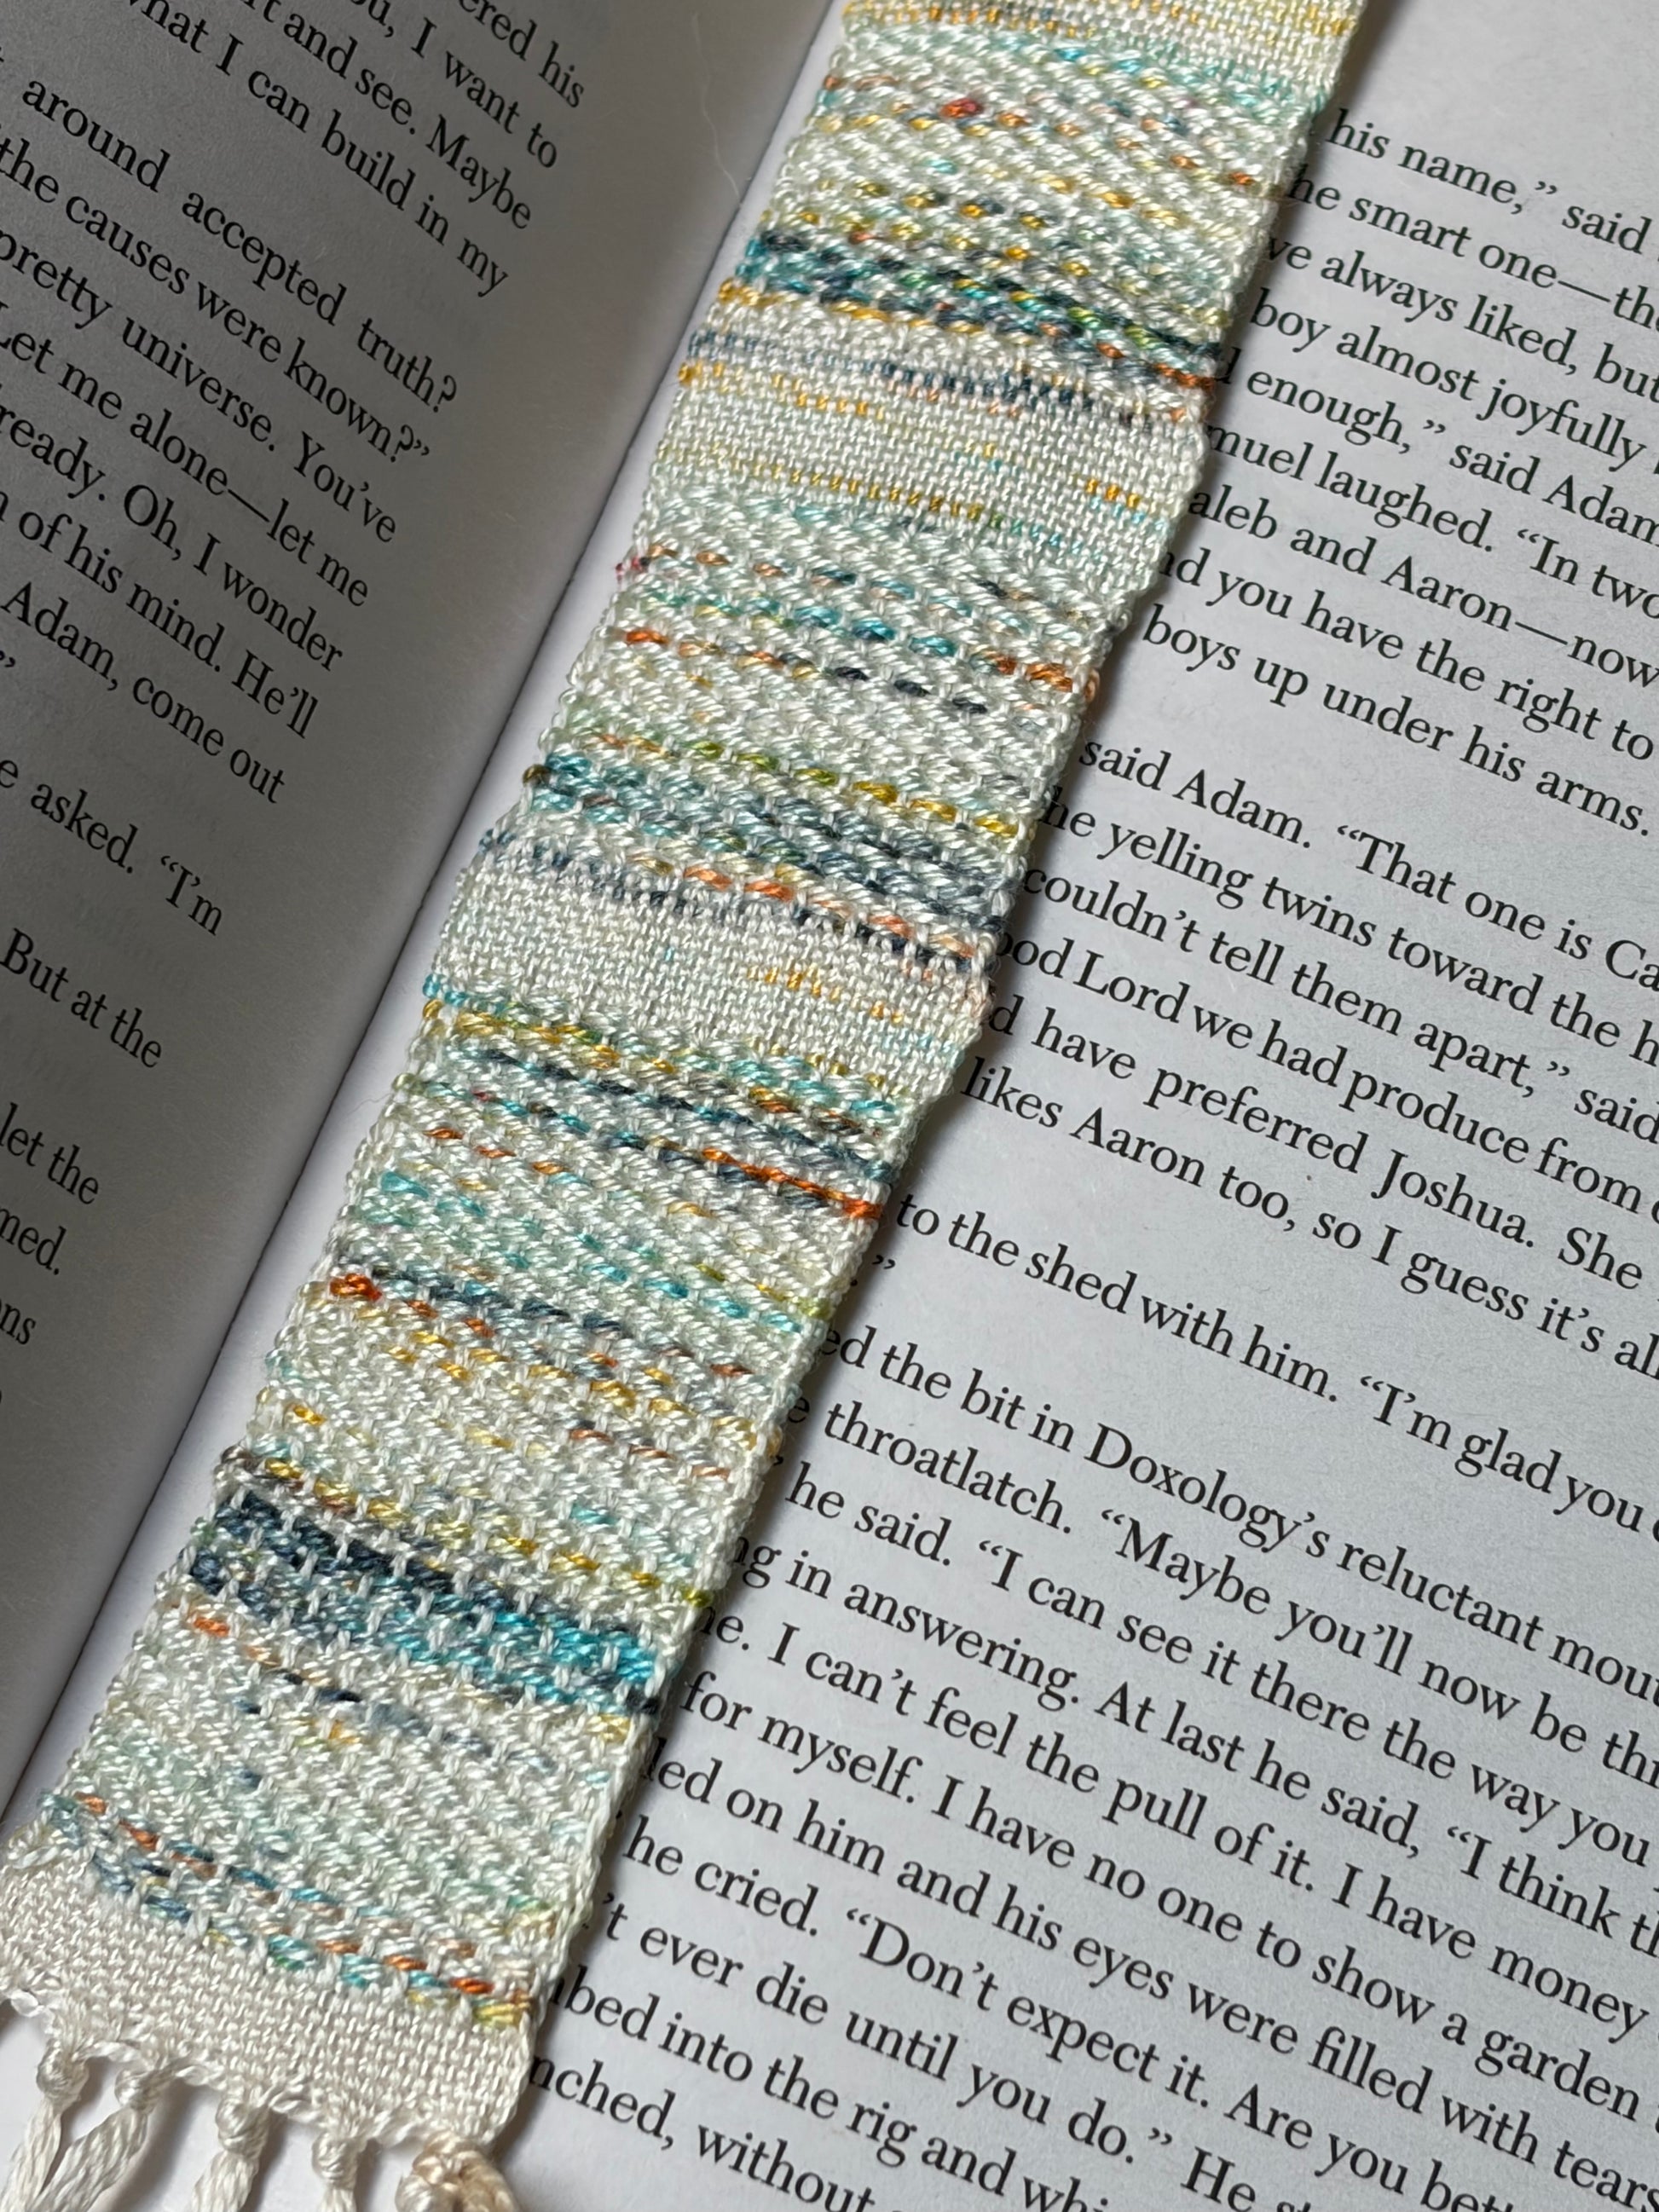 ered his
ou, I want to
rt and see. Maybe
what I can build in my
around accepted truth?
the causes were known?”
pretty universe. You’ve
Let me alone—let me
ready. Oh, I wonder
of his mind. He’ll
Adam, come out
”
e asked. “I’m
But at the
let the
med.
ons
his name,” said
he smart one—the
ve always liked, but
boy almost joyfully
enough,” said Adam
muel laughed. “In two
aleb and Aaron—now
nd you have the right to
boys up under his arms.
said Adam. “That one is Ca
he yelling twins toward the h
couldn’t tell them apart,” said
ood Lord we had produce from
d have preferred Joshua. She
likes Aaron too, so I guess it’s all
to the shed with him. “I’m glad you
.”
ed the bit in Doxology’s reluctant mou
e throatlatch. “Maybe you’ll now be thi
he said. “I can see it there the way you
ng in answering. At last he said, “I think th
ne. I can’t feel the pull of it. I have money
for myself. I have no one to show a garden
led on him and his eyes were filled with tears
he cried. “Don’t expect it. Are you bett
’t ever die until you do.” He st
bed into the rig and whi
nched, without